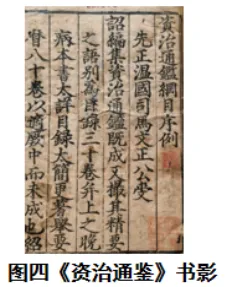 資治通鑑綱目序例
先正温國司馬文正公受
詔編集資治通鑑既成又撮其精要
之語別為目録三十卷并上之晚
病本書太詳目録太簡更著舉要
曆八十卷以適厥中而未成也紹
图四《资治通鉴》书影